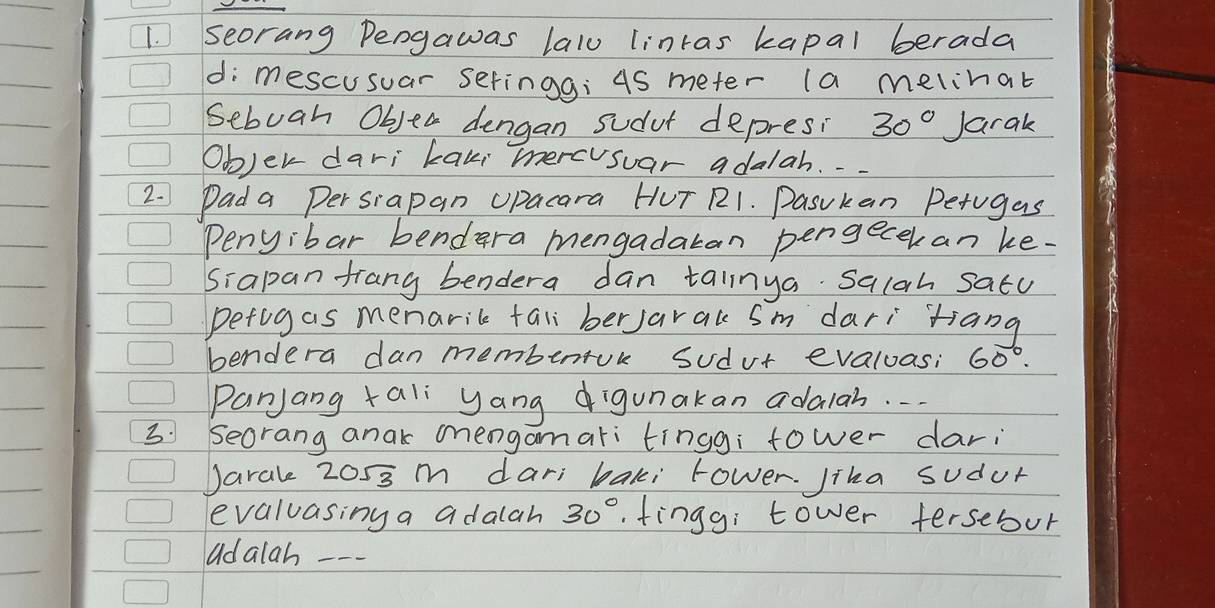 1. Seorang Pengawas lalu lintas kapal berada
di mescusuar setinggi 45 meter Ia melihat
Sebuah Objek dengan sudut depresi 30° Jarak
Objek dari kaki mercusuar adalah...
2. Pada Persiapan Upacara HUT RI. Pasukan Petugas
Penyibar bendera mengadakan pengecekan ke-
siapan tiang bendera dan talinya. Salah Satu
petugas menarik tali berjarak 5m dari tiang
bendera dan membentuk Sudut evaluasi 60°.
Panjang tali yang digunakan adalah...
3. Seorang anak mengamati tinggi tower dari
Jarak 20√3 m dari kaki tower. Jika sudut
evaluasinya adalah 30°. tinggi tower tersebut
adalah ---